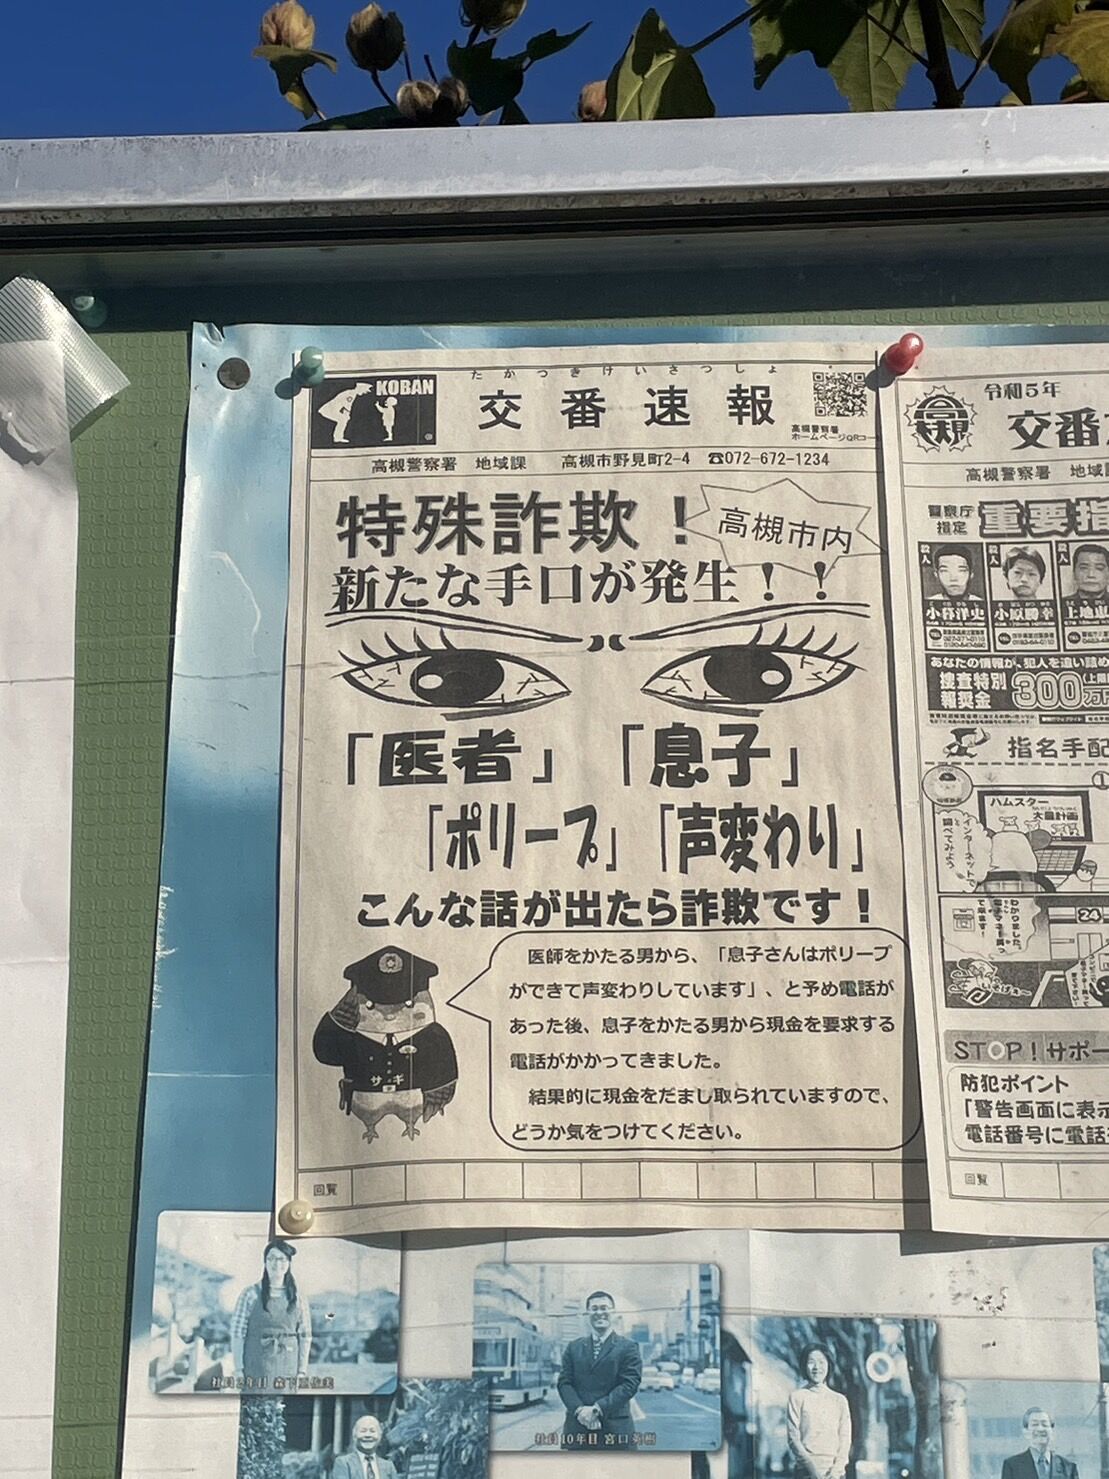 KOBAN
たかつきけいさつしょ
交番速報
高槻警察署
ホームページQRコー
高槻警察署 地域課 高槻市野見町2-4 ☎072-672-1234
特殊詐欺！
高槻市内
新たな手口が発生！！
「医者」「息子」
「ポリープ」「声変わり」
こんな話が出たら詐欺です！
医師をかたる男から、「息子さんはポリープ
ができて声変わりしています」、と予め電話が
あった後、息子をかたる男から現金を要求する
電話がかかってきました。
結果的に現金をだまし取られていますので、
どうか気をつけてください。
サギ
回覧
令和5年
交番
高槻警察署 地域
警察庁
指定
重要指
殺人
小林洋史
殺人
小原勝幸
殺人
上地恵
あなたの情報が、犯人を追い詰め
捜査特別
報奨金
300
万円
(上限
指名手配
①
ハムスター
大量計画
インターネットで
調べてみよう
わかりました。
24
STOP！サポー
防犯ポイント
「警告画面に表示
電話番号に電話
回覧
社員10年目 宮口英樹